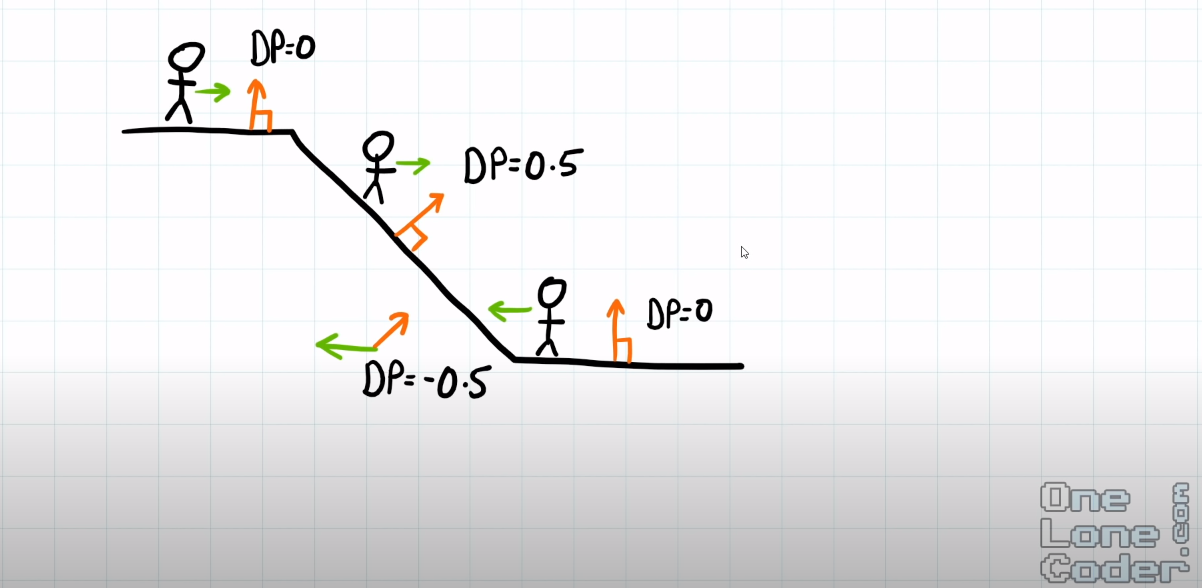 DP=0
DP=0.5
DP=0
DP=-0.5
One
Lone
Coder
.com